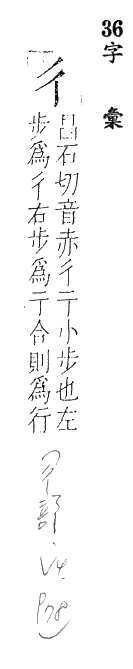 36
字彙
彳
昌石切音赤彳亍小步也左
步為彳右步為亍合則為行
(彳部. V4. P78)